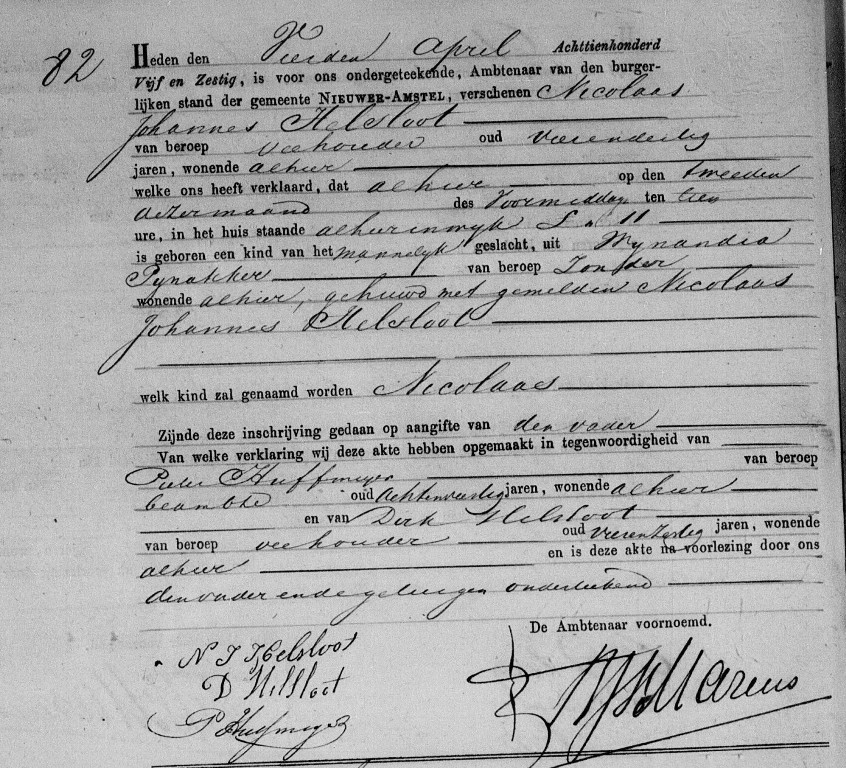 82
Heden den Vierden April Achttienhonderd
Vijf en Zestig, is voor ons ondergeteekende, Ambtenaar van den burger-
lijken stand der gemeente NIEUWER-AMSTEL, verschenen Nicolaas
Johannes Helsloot
van beroep veehouder oud vierendertig
jaren, wonende alhier
welke ons heeft verklaard, dat alhier op den tweeden
dezer maand des Voormiddags ten tien
ure, in het huis staande alhier in wyk S n 11
is geboren een kind van het mannelyk geslacht, uit Mynandia
Pynakker van beroep Zonder
wonende alhier, gehuwd met gemelden Nicolaas
Johannes Helsloot
welk kind zal genaamd worden Nicolaas
Zijnde deze inschrijving gedaan op aangifte van den vader
Van welke verklaring wij deze akte hebben opgemaakt in tegenwoordigheid van
Pieter Huffmeyer van beroep
beambte oud Achtenveertig jaren, wonende alhier
en van Dirk Helsloot
van beroep veehouder oud vierenzestig jaren, wonende
alhier en is deze akte na voorlezing door ons
den vader en de getuigen onderteekend
De Ambtenaar voornoemd.
N J Helsloot
D Helsloot
P Huffmeyer